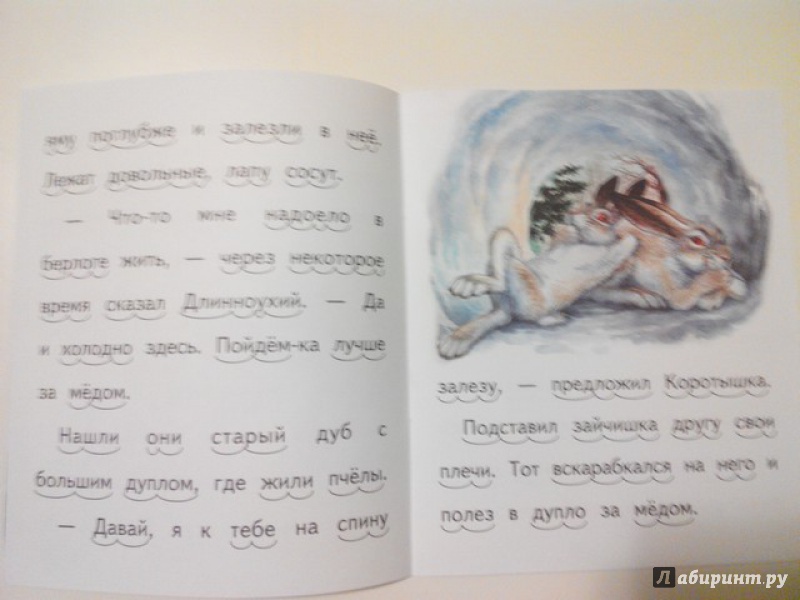 яму поглубже и залезли в неё.
Лежат довольные, лапу сосут.
— Что-то мне надоело в
берлоге жить, — через некоторое
время сказал Длинноухий. — Да
и холодно здесь. Пойдём-ка лучше
за мёдом.
Нашли они старый дуб с
большим дуплом, где жили пчёлы.
— Давай, я к тебе на спину
залезу, — предложил Коротышка.
Подставил зайчишка другу свои
плечи. Тот вскарабкался на него и
полез в дупло за мёдом.
Лабиринт.ру